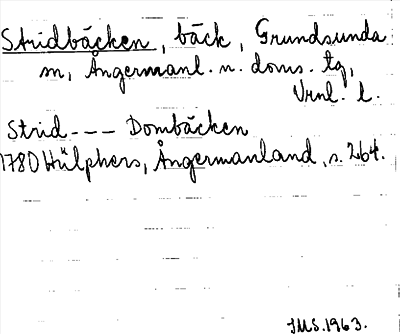 Stridbäcken, bäck, Grundsunda
sn, Ångermanl. n. doms. tg,
Vrnl. l.
Strid--- Dombäcken
1780 Hülphers, Ångermanland, s. 264.
JMS. 1963.